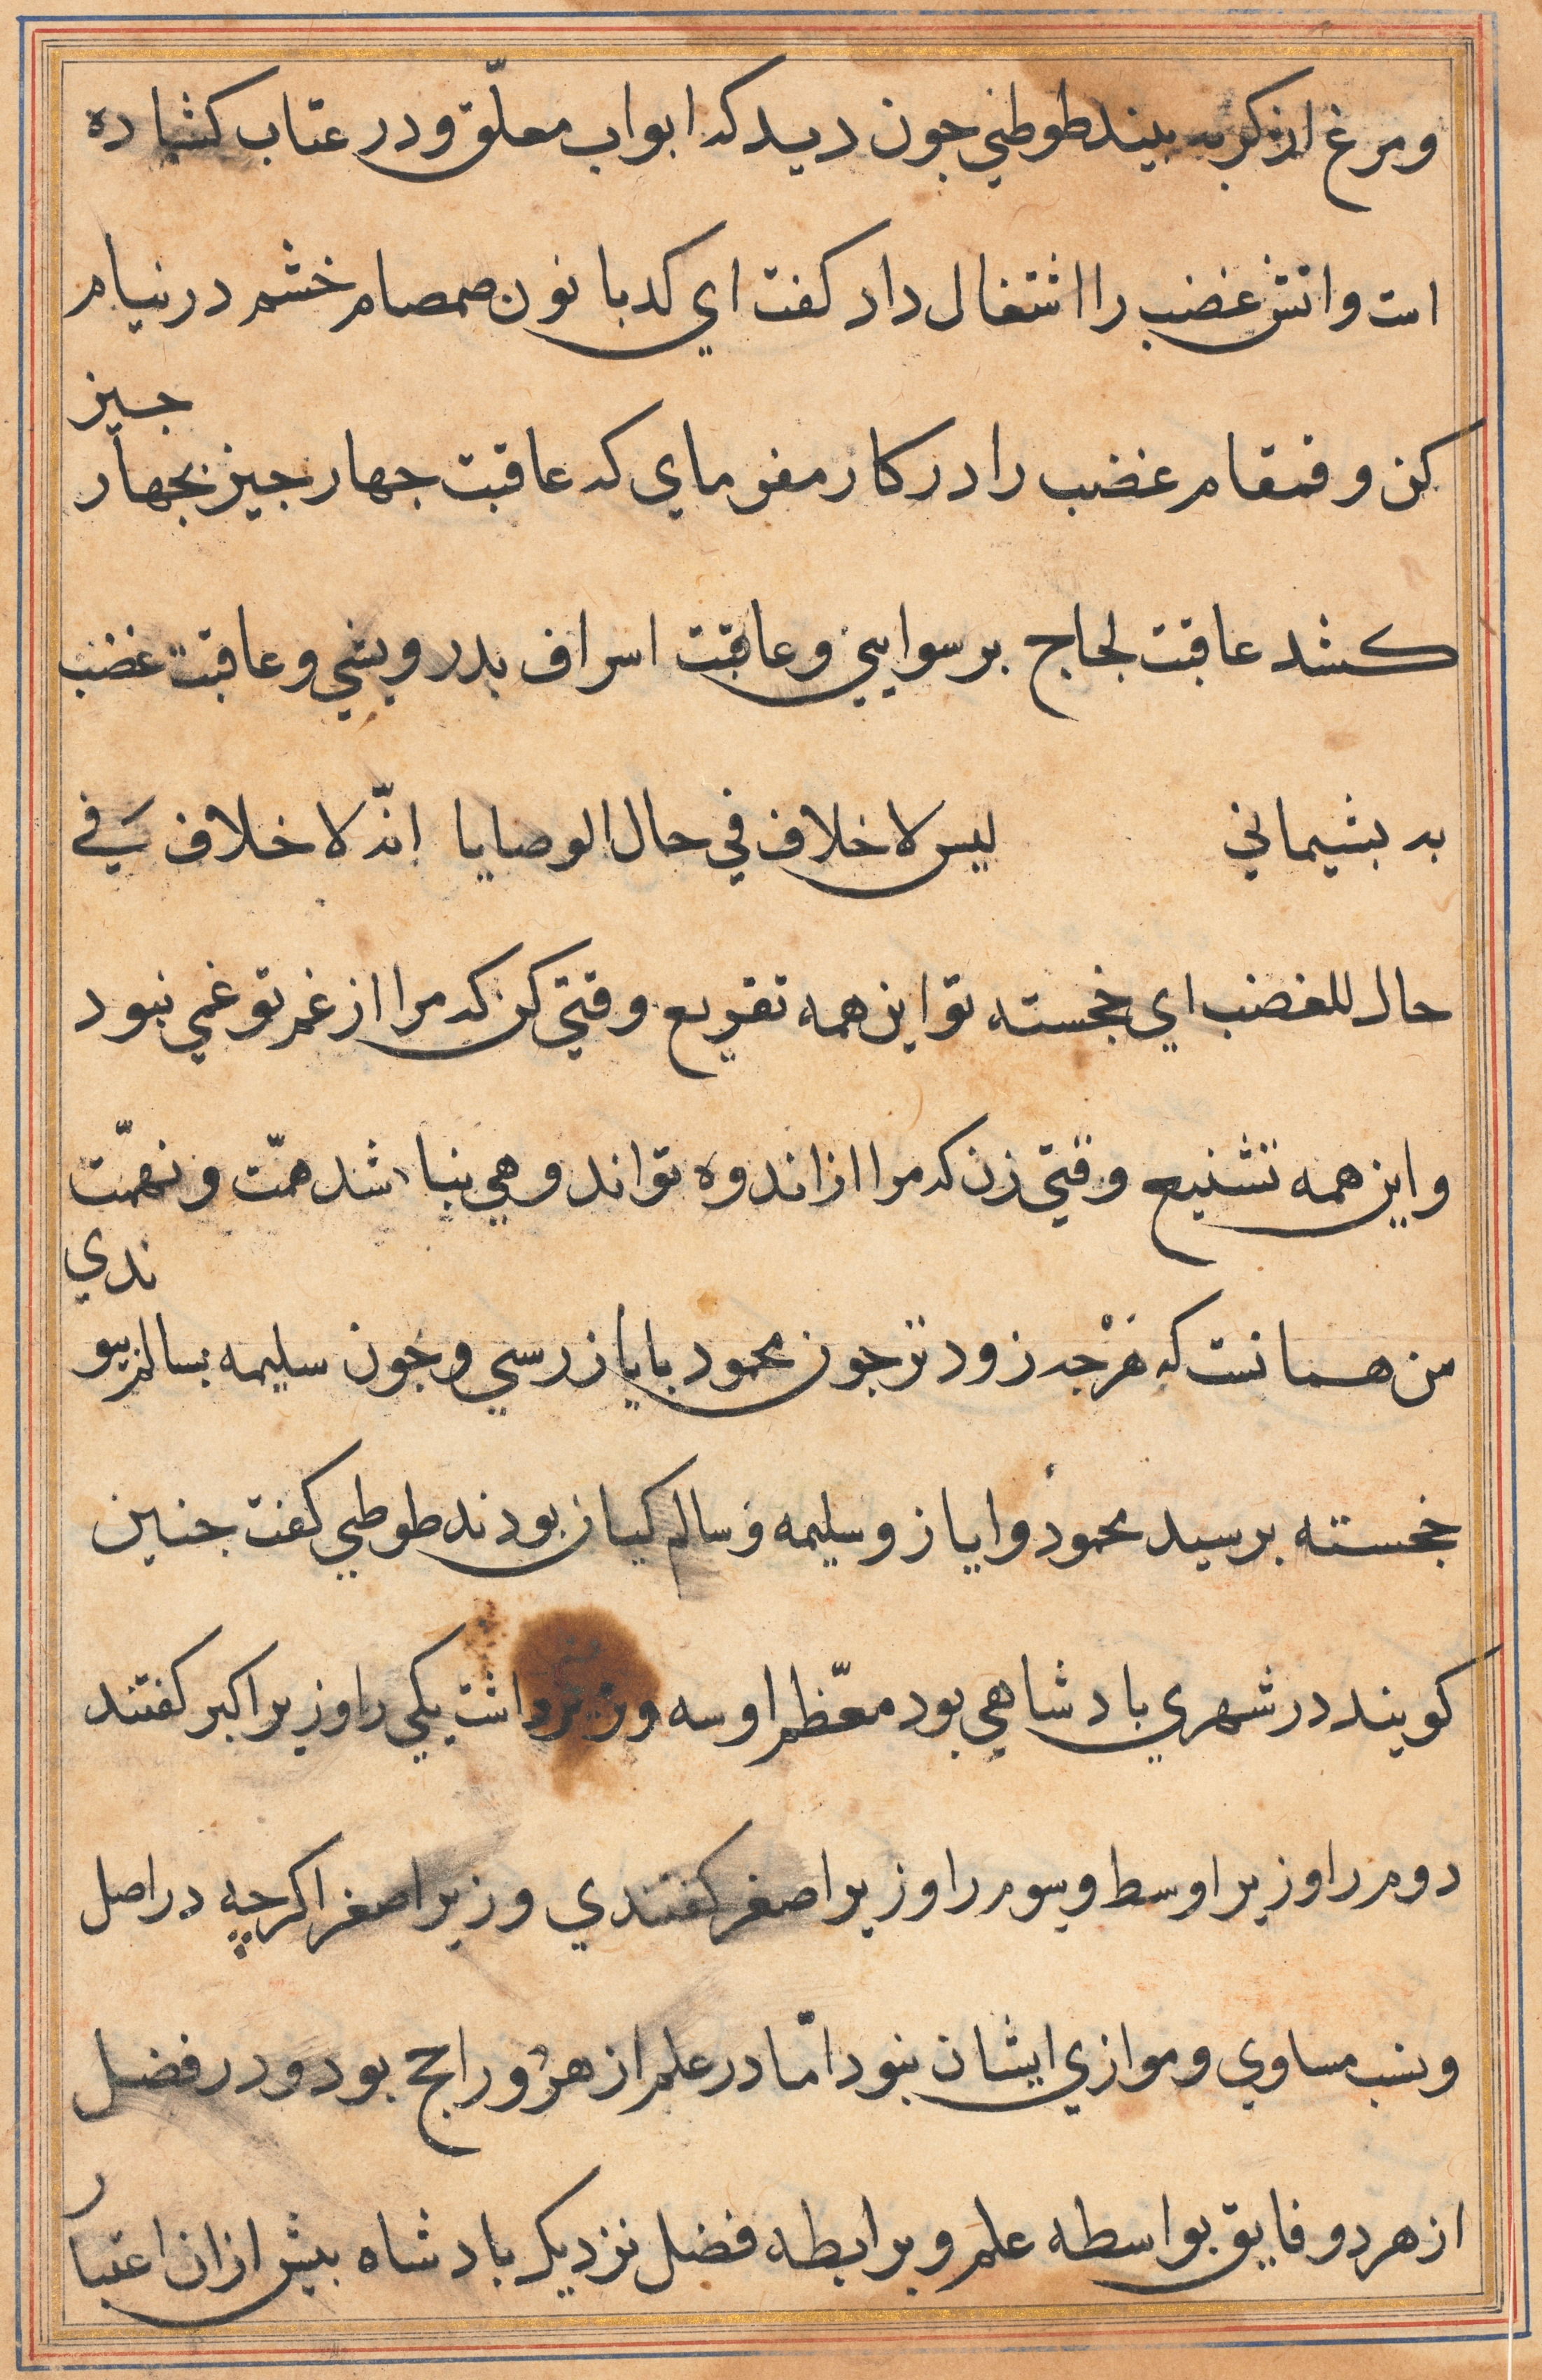 ومرغ از کربه بیند طوطی جون دید که ابواب معلّق و در عتاب کشاده
است واتش غضب را اشتغال داد کفت ای کدبانو ن صمصام خشم در نیام
کن و قمقام غضب را در کار مفرمای که عاقبت جهار جیز بجهار جیز
کشد عاقبت لجاج برسوایی وعاقبت اسراف بدرویشی وعاقبت غضب
به بشیمانی لیس لاخلاف فی حال الوصایا انّه لاخلاف فی
حال للغضب ای خجسته تو این همه تقریع وقتی کن که مرا از غم تو غمی نبود
واین همه تشنیع وقتی زن که مرا از اندوه تو اندوهی نباشد همّت ونهمّت
من همانست که هرجه زودتر جون محمود بایاز رسی وجون سلیمه بسالم بیوندی
خجسته برسید محمود وایاز وسلیمه وسالم کیان بودند طوطی کفت جنین
کویند در شهری بادشاهی بود معظّم او سه وزیر داشت یکی را وزیر اکبر کفتند
دوم را وزیر اوسط وسوم را وزیر اصغر کفتندی وزیر اصغر اکرچه در اصل
ونسب مساوی وموازی ایشان نبود امّا در علم از هر دو راجح بود ودر فضل
از هر دو فایق بواسطه علم وبرابطه فضل نزدیک بادشاه بیش ازان اعتبار